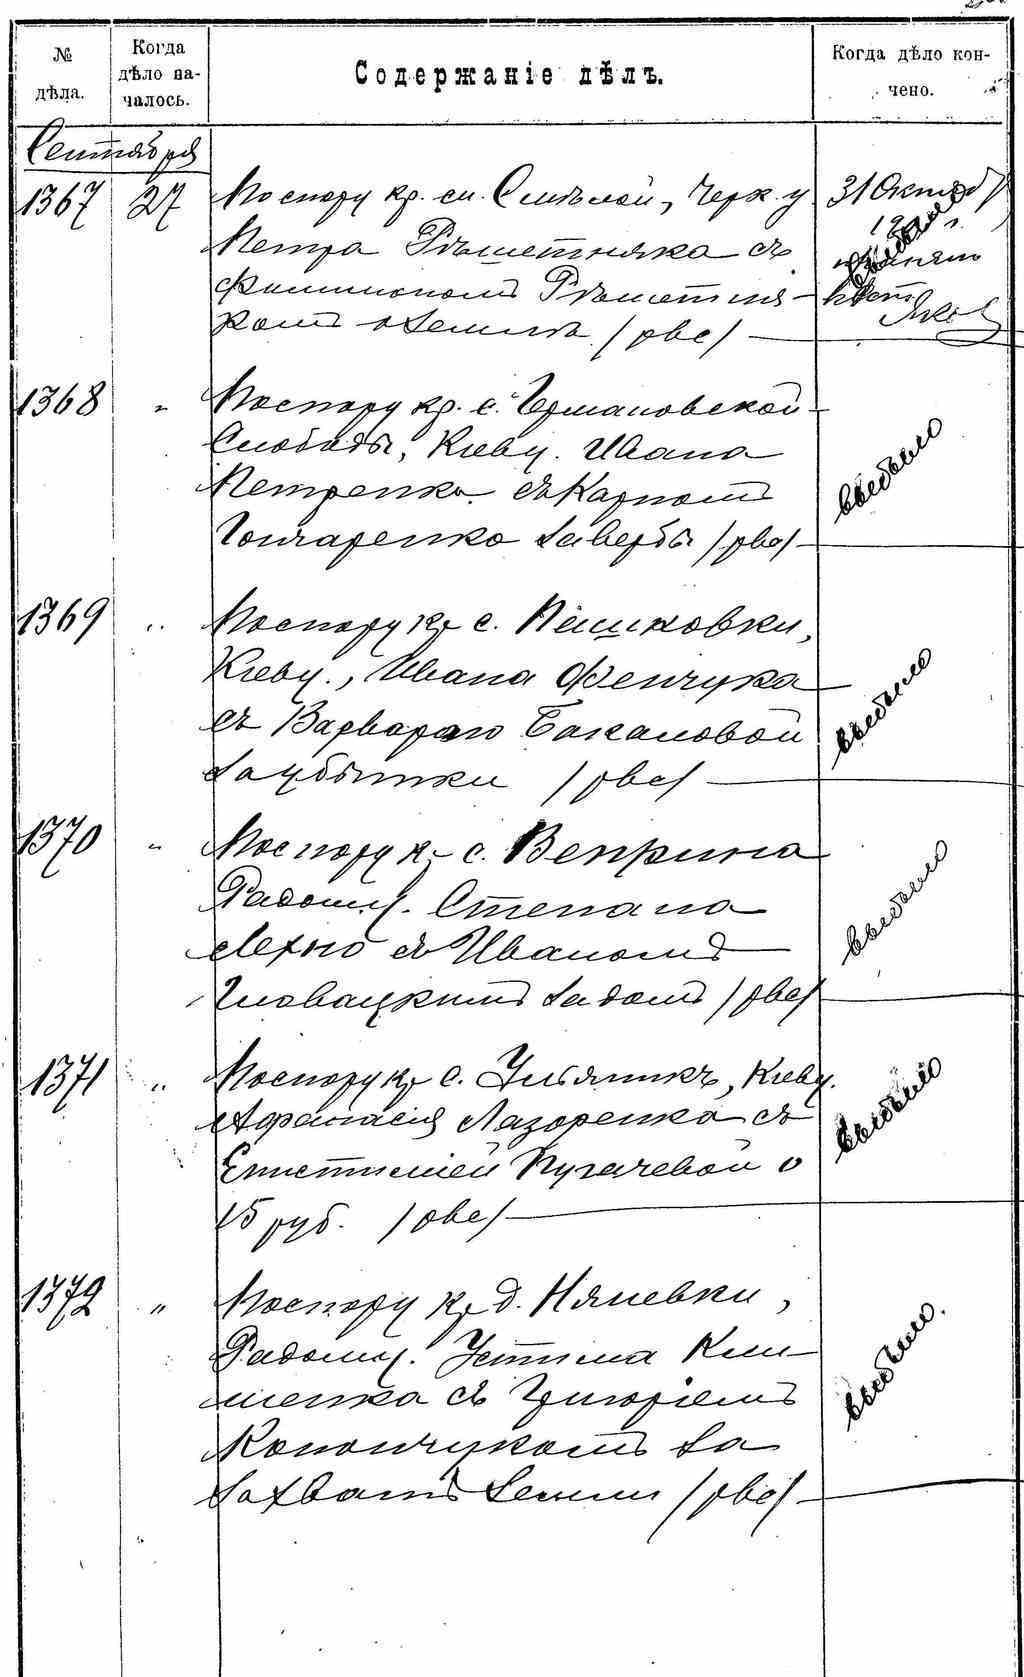 № дѣла.
Когда дѣло началось.
Содержаніе дѣлъ.
Когда дѣло кончено.
Сентября
1367 27 По спору кр. см. Смѣлой, Черк. у
Петра Рѣшетняка съ
Филимономъ Рѣшетня-
комъ о землѣ /рвс/
31 Октяб
1368 " По спору кр. с. Германовской
Слободы, Кіеву. Ивана
Петренка съ Карпомъ
Гончаренко за вербы /рвс/
выбыло
1369 " По спору кр с. Пѣшковки,
Кіеву., Ивана Фенчука
съ Варварою Бакаловой
за убытки /рвс/
выбыло
1370 " По спору к. с. Веприна
Радомы. Степана
Лехно съ Иваномъ
Гловацкимъ за домъ /рвс/
выбыло
1371 " По спору кр с. Ульяникъ, Кіеву.
Афанасія Лазоренка съ
Епистиміей Пугачевой о
15 руб. /рвс/
выбыло
1372 " По спору кр д. Няневки,
Радомы. Устина Кли-
менка съ Григоріемъ
Конончукомъ за
захватъ земли /рвс/
выбыло.